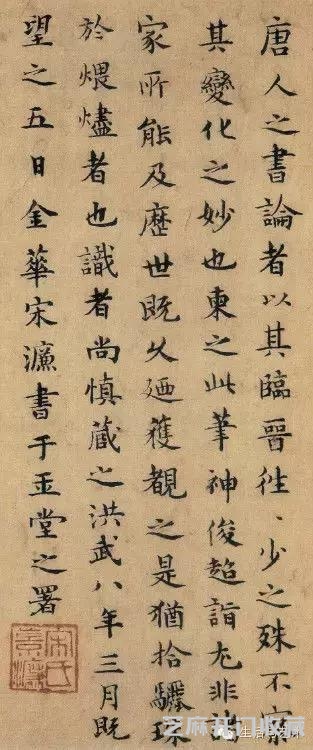 唐人之書論者以其臨晉往、少之殊不察
其變化之妙也柬之此筆神俊超詣尤非諸
家所能及歷世既久廼獲覩之是猶拾驪珠
於煨燼者也識者尚慎藏之洪武八年三月既
望之五日金華宋濂書于玉堂之署
宋氏景濂
芝麻开门收藏